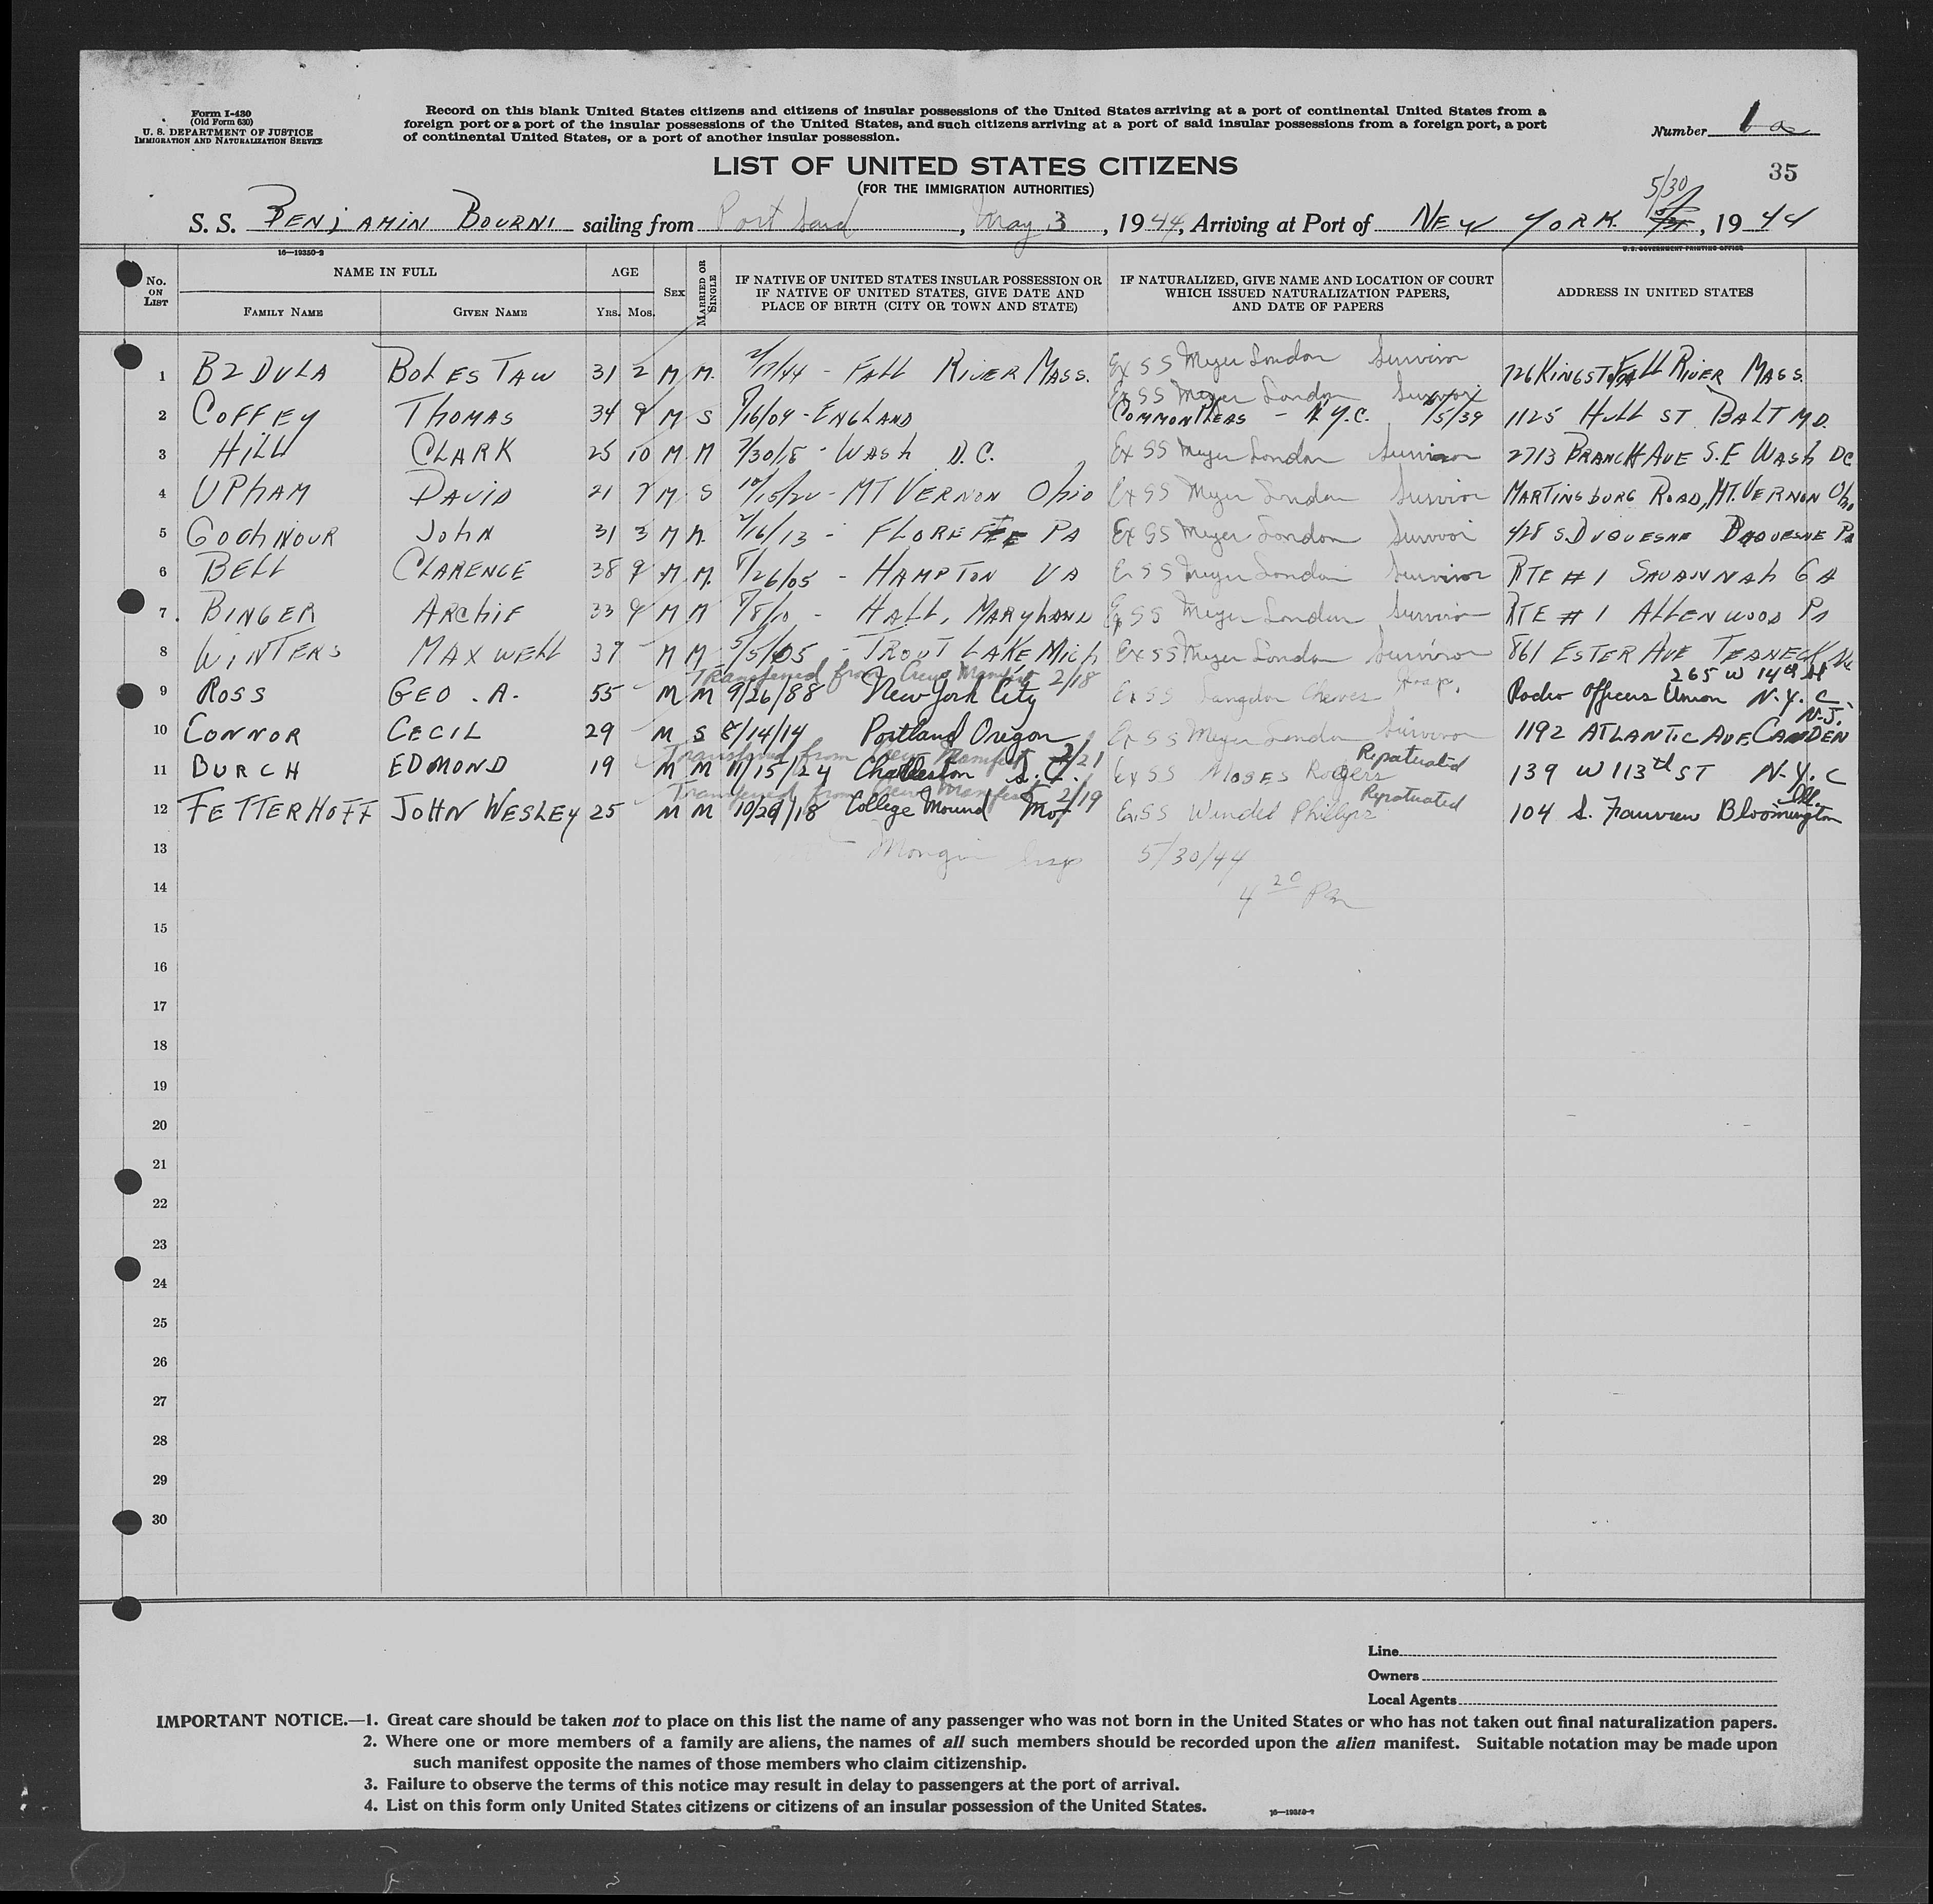 Form I-430
(Old Form 630)
U. S. DEPARTMENT OF JUSTICE
IMMIGRATION AND NATURALIZATION SERVICE
Record on this blank United States citizens and citizens of insular possessions of the United States arriving at a port of continental United States from a
foreign port or a port of the insular possessions of the United States, and such citizens arriving at a port of said insular possessions from a foreign port, a port
of continental United States, or a port of another insular possession.
Number 1 a
LIST OF UNITED STATES CITIZENS
(FOR THE IMMIGRATION AUTHORITIES)
35
5/30
S. S. BENJAMIN BOURNI sailing from Port Said, May 3, 1944, Arriving at Port of NEW YORK, 1944
16—19350-2
U. S. GOVERNMENT PRINTING OFFICE
No. ON LIST
NAME IN FULL
FAMILY NAME
GIVEN NAME
AGE
YRS. MOS.
SEX
MARRIED OR SINGLE
IF NATIVE OF UNITED STATES INSULAR POSSESSION OR
IF NATIVE OF UNITED STATES, GIVE DATE AND
PLACE OF BIRTH (CITY OR TOWN AND STATE)
IF NATURALIZED, GIVE NAME AND LOCATION OF COURT
WHICH ISSUED NATURALIZATION PAPERS,
AND DATE OF PAPERS
ADDRESS IN UNITED STATES
1 BZDULA BOLESTAW 31 2 M M. - FALL RIVER MASS. Ex SS Meyer London Survivor 726 KINGSTON FALL RIVER MASS.
Ex SS Meyer London Survivor
2 COFFEY THOMAS 34 9 M S - ENGLAND COMMON PLEAS - N.Y.C. 1125 HULL ST BALT MD.
3 HILL CLARK 25 10 M M 7/30/18 - WASH D.C. Ex SS Meyer London Survivor 2713 BRANCH AVE S.E WASH DC
4 UPHAM DAVID 21 7 M S 10/15/20 - MT VERNON Ohio Ex SS Meyer London Survivor MARTINSBURG ROAD, MT. VERNON Oh.
5 GOCHNOUR JOHN 31 3 M M. 2/16/13 - PA Ex SS Meyer London Survivor 428 S. DUQUESNE DUQUESNE PA
6 BELL CLARENCE 38 9 M M. 8/26/05 - HAMPTON VA Ex SS Meyer London Survivor RTE # 1 SAVANNAH GA
7 BINGER ARCHIE 33 9 M M - HALL, MARYLAND Ex SS Meyer London Survivor RTE # 1 ALLENWOOD PA
8 WINTERS MAXWELL 39 M M 5/5/05 - TROUT LAKE Mich Ex SS Meyer London Survivor 861 ESTER AVE TEANECK
Transferred from Crew Manifest 2/18 265 W 14th St
9 ROSS GEO. A. 55 M M 9/26/88 New York City Ex SS Langdon Cheves Hosp. Radio Officers Union N.Y.C.
N.J.
10 CONNOR CECIL 29 M S 8/14/14 Portland Oregon Ex SS Meyer London Survivor 1192 ATLANTIC AVE CAMDEN
Transferred from Crew Manifest 2/21 Repatriated
11 BURCH EDMOND 19 M M 11/15/24 Charleston S.C. Ex SS MOSES Rogers 139 W 113th ST N.Y.C
Transferred from Crew Manifest 2/19 Repatriated Ill.
12 FETTERHOFF JOHN WESLEY 25 M M 10/29/18 College Mound Mo. Ex. SS Windel Phillips 104 S. Fairview Bloomington
13 Insp 5/30/44
14 4 20 Pm
15
16
17
18
19
20
21
22
23
24
25
26
27
28
29
30
Line
Owners
Local Agents
IMPORTANT NOTICE.—1. Great care should be taken not to place on this list the name of any passenger who was not born in the United States or who has not taken out final naturalization papers.
2. Where one or more members of a family are aliens, the names of all such members should be recorded upon the alien manifest. Suitable notation may be made upon
such manifest opposite the names of those members who claim citizenship.
3. Failure to observe the terms of this notice may result in delay to passengers at the port of arrival.
4. List on this form only United States citizens or citizens of an insular possession of the United States.
16—19350-2